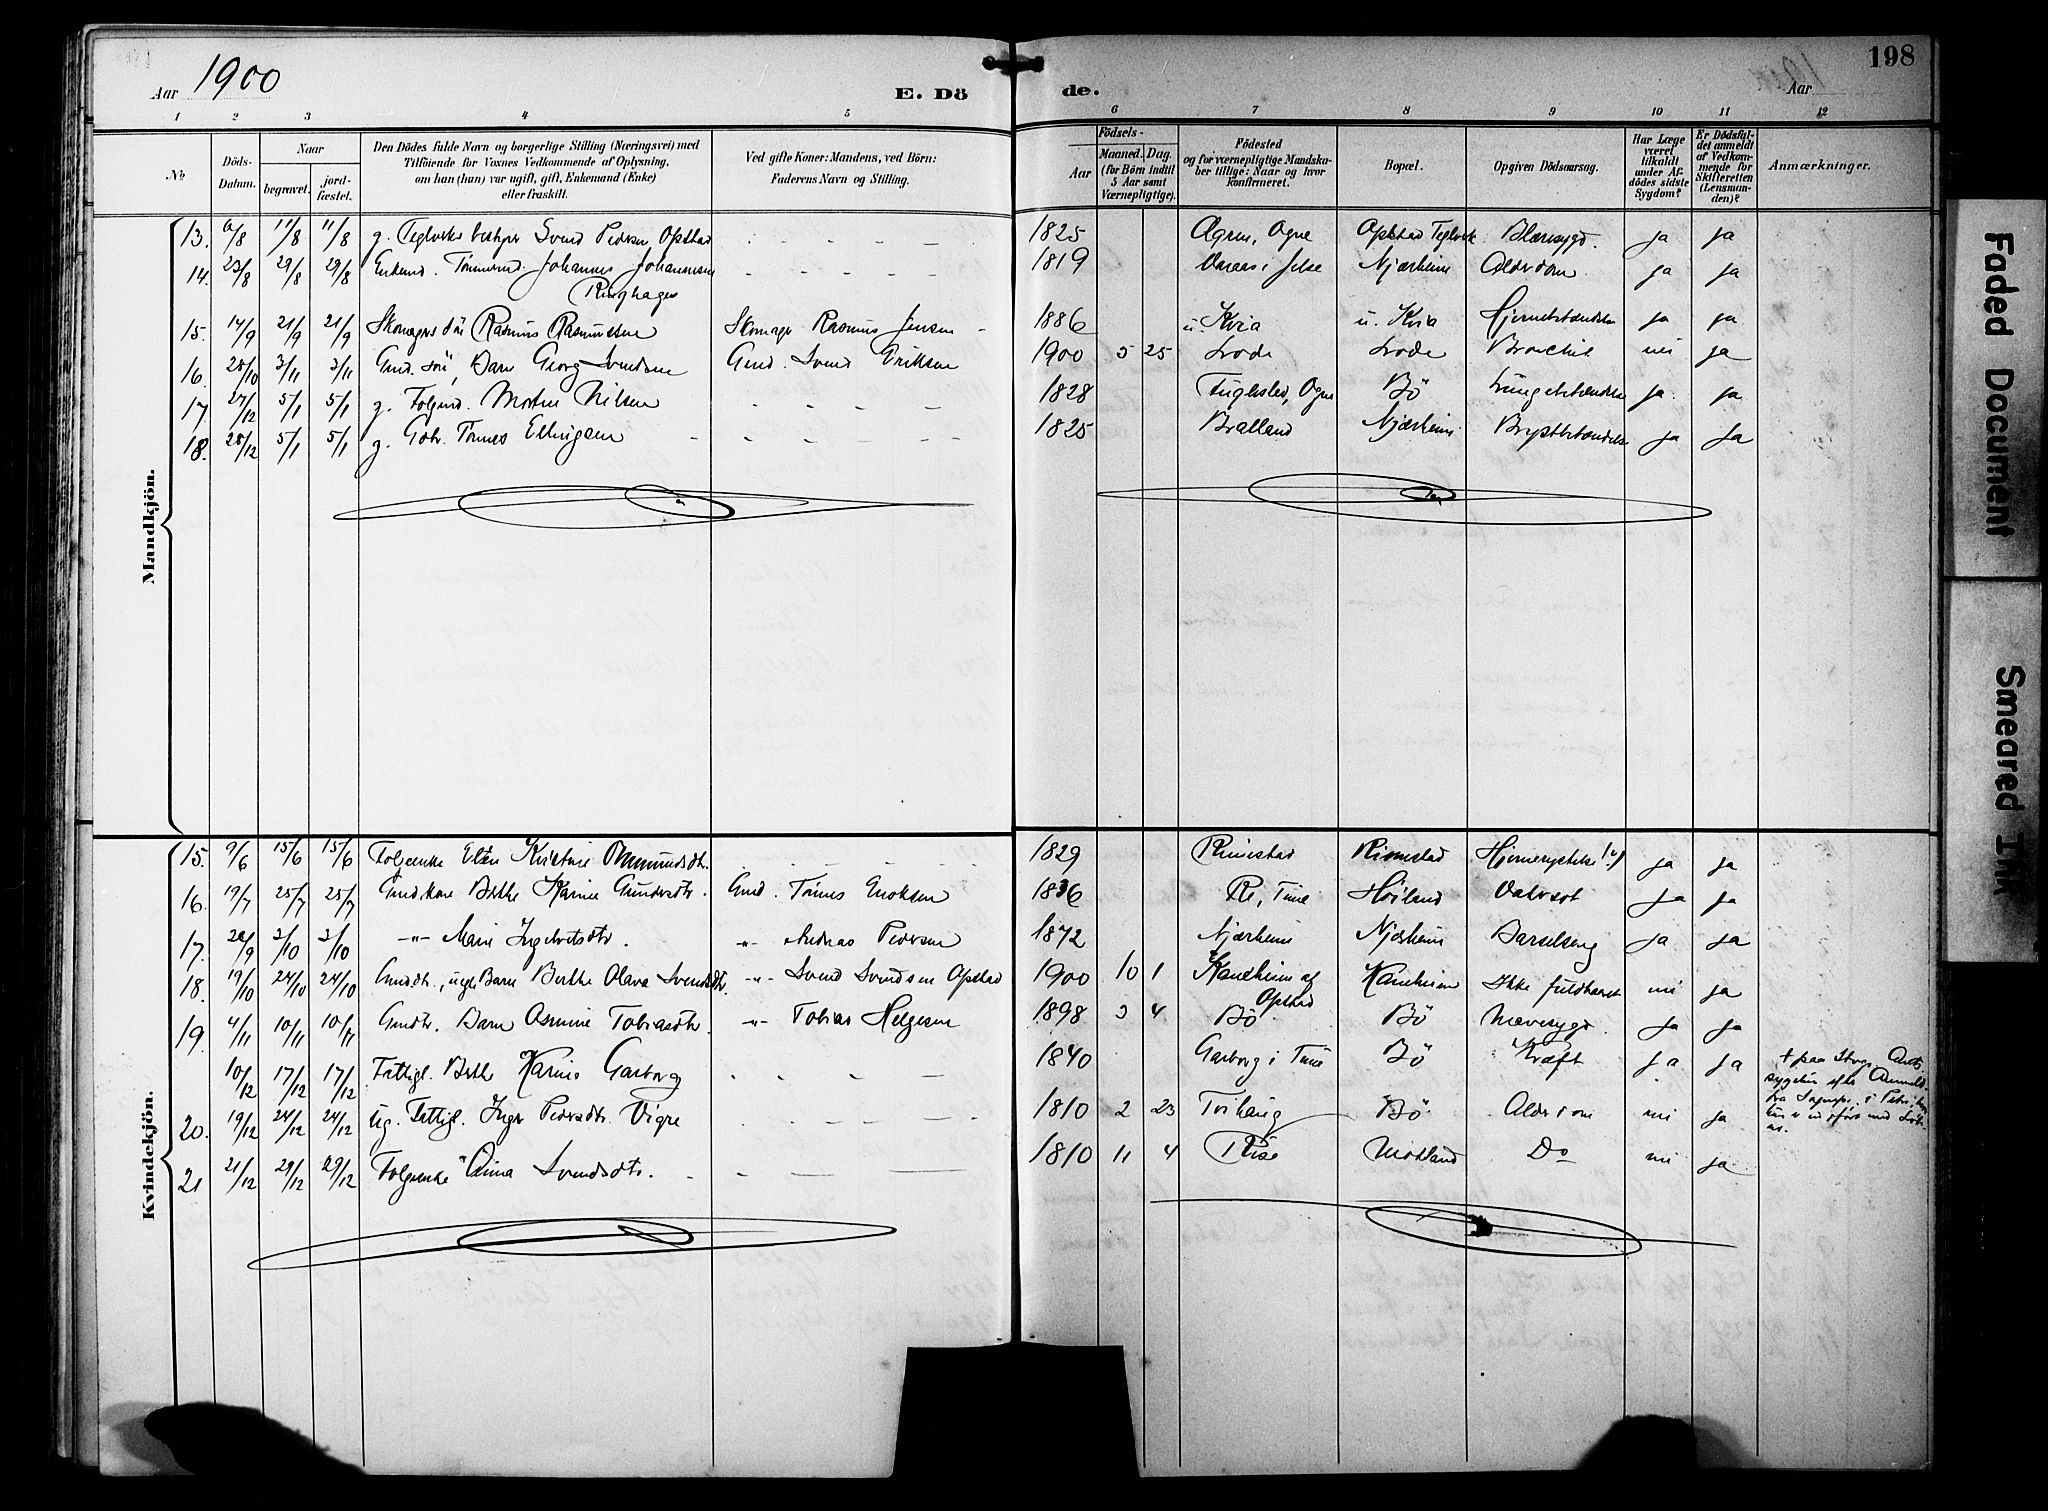 Aar 1900 E. Dö de. Aar 198
1 2 3 4 5 6 7 8 9 10 11 12
No Döds-Datum. Naar begravet. jord-fæstet. Den Dödes fulde Navn og borgerlige Stilling (Næringsvei) med Tilföiende for Voxnes Vedkommende af Oplysning, om han (hun) var ugift, gift, Enkemand (Enke) eller fraskilt. Ved gifte Koner: Mandens, ved Börn: Faderens Navn og Stilling. Födsels- Aar Maaned. Dag. (for Börn indtil 5 Aar samt Værnepligtige). Födested og for værnepligtige Mandska-ber tillige: Naar og hvor konfirmeret. Bopæl. Opgiven Dödsaarsag. Har Læge været tilkaldt under Af-dödes sidste Sygdom? Er Dödsfal-det anmeldt af Vedkom-mende for Skifteretten (Lensman-den)? Anmærkninger.
Mandkjön.
13. 6/8 11/8 11/8 g. Teglverksbestyrer Svend Pedersen Opstad 1825 Ogne Opstad Teglverk Blæresygd. ja ja
14. 23/8 29/8 29/8 Enkemd. Tømmermd. Johannes Johannessen 1819 Varaas i Jelse Njærheim Alderdom ja ja
Ringhagen
15. 14/9 21/9 21/9 Skomagers sön Rasmus Rasmussen Skomager Rasmus Jensen 1886 u. Kvia u. Kvia Hjernebetændelse ja ja
16. 28/10 3/11 3/11 Gmd. sön, Barn Georg Svendsen Gmd. Svend Eriksen 1900 5 25 Lode Lode Bronchit nei ja
17. 27/12 5/1 5/1 g. Folgmd. Morten Nilsen 1828 Fuglestad, Ogne Bö Lungebetændelse ja ja
18. 28/12 5/1 5/1 g. Gbr. Tönnes Ellingsen 1825 Bratland Njærheim Brystbetændelse ja ja
Kvindekjön.
15. 9/6 15/6 15/6 Folgeenke Elen Kristine Ommundsdtr. 1829 Rimestad Rimestad Hjernerystelse (?) ja ja
16. 19/7 25/7 25/7 Gmdskone Berthe Karine Gundersdtr. Gmd. Tönnes Enoksen 1836 Re, Time Höiland Vatersot ja ja
17. 28/9 3/10 3/10 -"- Marie Ingebretsdtr. -"- Andreas Pedersen 1872 Njærheim Njærheim Barselseng ja ja
18. 19/10 24/10 24/10 Gmddtr., Barn Berthe Olava Svendsdtr. -"- Svend Svendsen Opstad 1900 10 1 Kaneheim af Kaneheim Ikke fuldbaaret nei ja
Opstad
19. 4/11 10/11 10/11 Gmdtr. Barn Asmine Tobiasdtr. -"- Tobias Helgesen 1898 3 4 Bö Bö ja ja
10/12 17/12 17/12 Fattigl. Berthe Karine Garborg 1840 Garborg i Time Bö Kræft ja ja † paa Stvgr. Amts
sygehus efter Anmeld.
fra Sognepr. i Petri
20. 19/12 24/12 24/12 ug. Fattigl. Inger Pedersdtr. Vigre 1810 2 23 Tvihaug Bö Alderdom nei ja
21 21/12 29/12 29/12 Folgeenke Anna Svendsdtr. 1810 11 4 Rise Motland Do nei ja
Faded Document
Smeared Ink